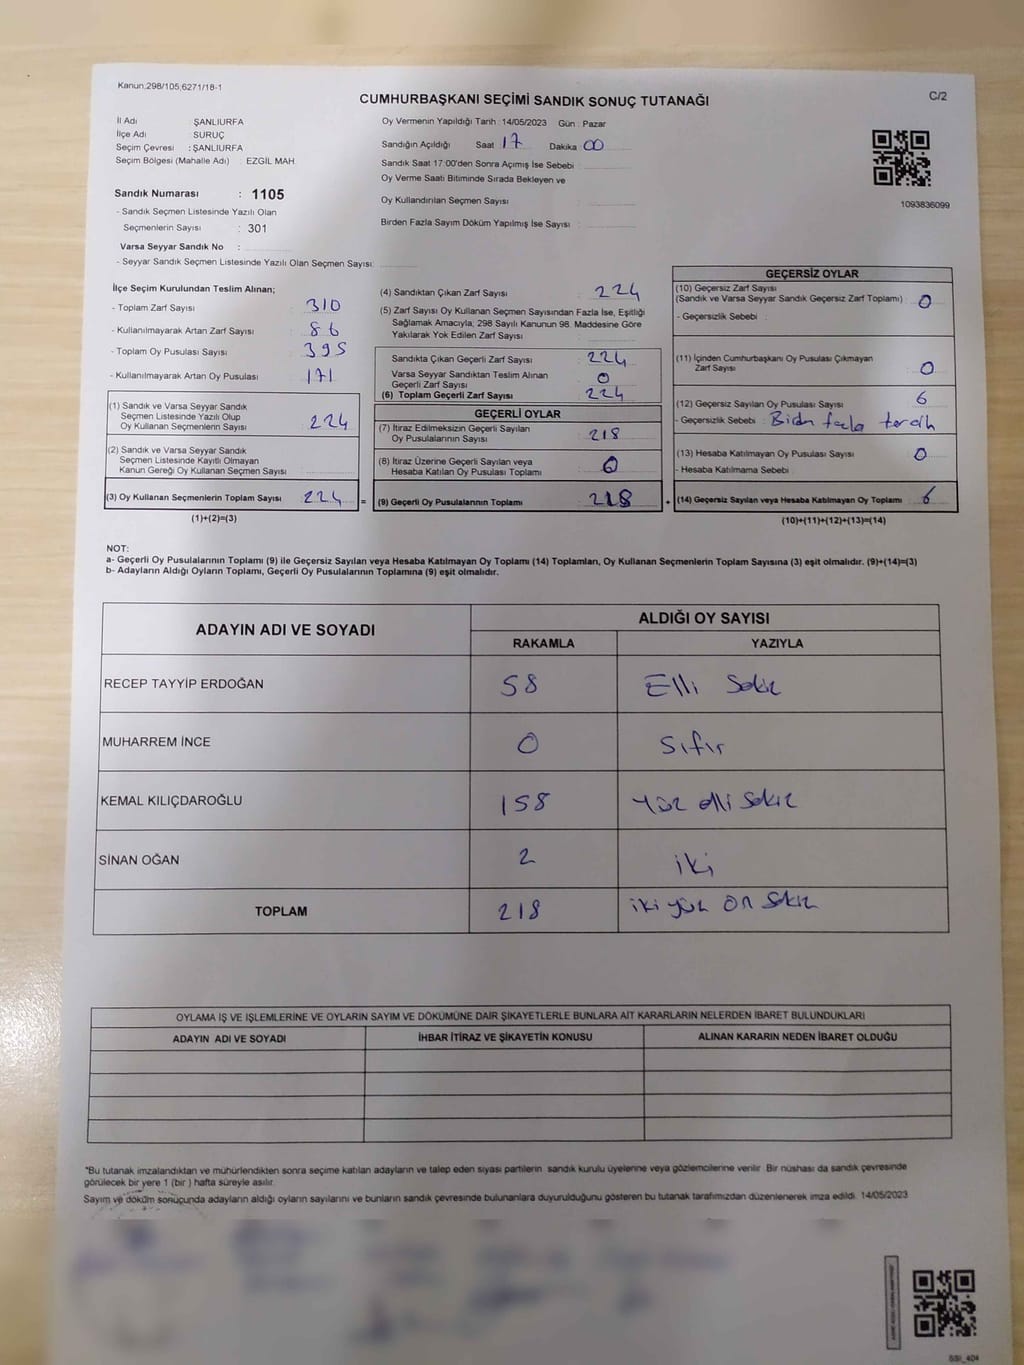 Kanun:298/105,6271/18-1
CUMHURBAŞKANI SEÇİMİ SANDIK SONUÇ TUTANAĞI
C/2
İl Adı : ŞANLIURFA
İlçe Adı : SURUÇ
Seçim Çevresi : ŞANLIURFA
Seçim Bölgesi (Mahalle Adı) : EZGİL MAH.
Sandık Numarası : 1105
- Sandık Seçmen Listesinde Yazılı Olan
Seçmenlerin Sayısı : 301
Varsa Seyyar Sandık No :
- Seyyar Sandık Seçmen Listesinde Yazılı Olan Seçmen Sayısı:
Oy Vermenin Yapıldığı Tarih : 14/05/2023 Gün : Pazar
Sandığın Açıldığı Saat 17 Dakika 00
Sandık Saat 17:00'den Sonra Açımış İse Sebebi :
Oy Verme Saati Bitiminde Sırada Bekleyen ve
Oy Kullandırılan Seçmen Sayısı :
Birden Fazla Sayım Döküm Yapılmış İse Sayısı :
1093836099
İlçe Seçim Kurulundan Teslim Alınan;
- Toplam Zarf Sayısı : 310
- Kullanılmayarak Artan Zarf Sayısı : 86
- Toplam Oy Pusulası Sayısı : 395
- Kullanılmayarak Artan Oy Pusulası : 171
(1) Sandık ve Varsa Seyyar Sandık
Seçmen Listesinde Yazılı Olup
Oy Kullanan Seçmenlerin Sayısı : 224
(2) Sandık ve Varsa Seyyar Sandık
Seçmen Listesinde Kayıtlı Olmayan
Kanun Gereği Oy Kullanan Seçmen Sayısı :
(3) Oy Kullanan Seçmenlerin Toplam Sayısı : 224
(1)+(2)=(3)
(4) Sandıktan Çıkan Zarf Sayısı : 224
(5) Zarf Sayısı Oy Kullanan Seçmen Sayısından Fazla İse, Eşitliği
Sağlamak Amacıyla; 298 Sayılı Kanunun 98. Maddesine Göre
Yakılarak Yok Edilen Zarf Sayısı :
Sandıkta Çıkan Geçerli Zarf Sayısı : 224
Varsa Seyyar Sandıktan Teslim Alınan
Geçerli Zarf Sayısı : 0
(6) Toplam Geçerli Zarf Sayısı : 224
GEÇERLİ OYLAR
(7) İtiraz Edilmeksizin Geçerli Sayılan
Oy Pusulalarının Sayısı : 218
(8) İtiraz Üzerine Geçerli Sayılan veya
Hesaba Katılan Oy Pusulası Toplamı : 0
= (9) Geçerli Oy Pusulalarının Toplamı : 218 +
GEÇERSİZ OYLAR
(10) Geçersiz Zarf Sayısı
(Sandık ve Varsa Seyyar Sandık Geçersiz Zarf Toplamı) : 0
- Geçersizlik Sebebi :
(11) İçinden Cumhurbaşkanı Oy Pusulası Çıkmayan
Zarf Sayısı : 0
(12) Geçersiz Sayılan Oy Pusulası Sayısı : 6
- Geçersizlik Sebebi : Birden fazla tercih
(13) Hesaba Katılmayan Oy Pusulası Sayısı : 0
- Hesaba Katılmama Sebebi :
(14) Geçersiz Sayılan veya Hesaba Katılmayan Oy Toplamı : 6
(10)+(11)+(12)+(13)=(14)
NOT:
a- Geçerli Oy Pusulalarının Toplamı (9) ile Geçersiz Sayılan veya Hesaba Katılmayan Oy Toplamı (14) Toplamları, Oy Kullanan Seçmenlerin Toplam Sayısına (3) eşit olmalıdır. (9)+(14)=(3)
b- Adayların Aldığı Oyların Toplamı, Geçerli Oy Pusulalarının Toplamına (9) eşit olmalıdır.
ADAYIN ADI VE SOYADI
ALDIĞI OY SAYISI
RAKAMLA YAZIYLA
RECEP TAYYİP ERDOĞAN 58 Elli Sekiz
MUHARREM İNCE 0 Sıfır
KEMAL KILIÇDAROĞLU 158 Yüz elli Sekiz
SİNAN OĞAN 2 iki
TOPLAM 218 iki yüz on Sekiz
OYLAMA İŞ VE İŞLEMLERİNE VE OYLARIN SAYIM VE DÖKÜMÜNE DAİR ŞİKAYETLERLE BUNLARA AİT KARARLARIN NELERDEN İBARET BULUNDUKLARI
ADAYIN ADI VE SOYADI İHBAR İTİRAZ VE ŞİKAYETİN KONUSU ALINAN KARARIN NEDEN İBARET OLDUĞU
*Bu tutanak imzalandıktan ve mühürlendikten sonra seçime katılan adayların ve talep eden siyasi partilerin sandık kurulu üyelerine veya gözlemcilerine verilir. Bir nüshası da sandık çevresinde
görülecek bir yere 1 (bir ) hafta süreyle asılır.
Sayım ve döküm sonucunda adayların aldığı oyların sayılarını ve bunların sandık çevresinde bulunanlara duyurulduğunu gösteren bu tutanak tarafımızdan düzenlenerek imza edildi. 14/05/2023
SSI_404